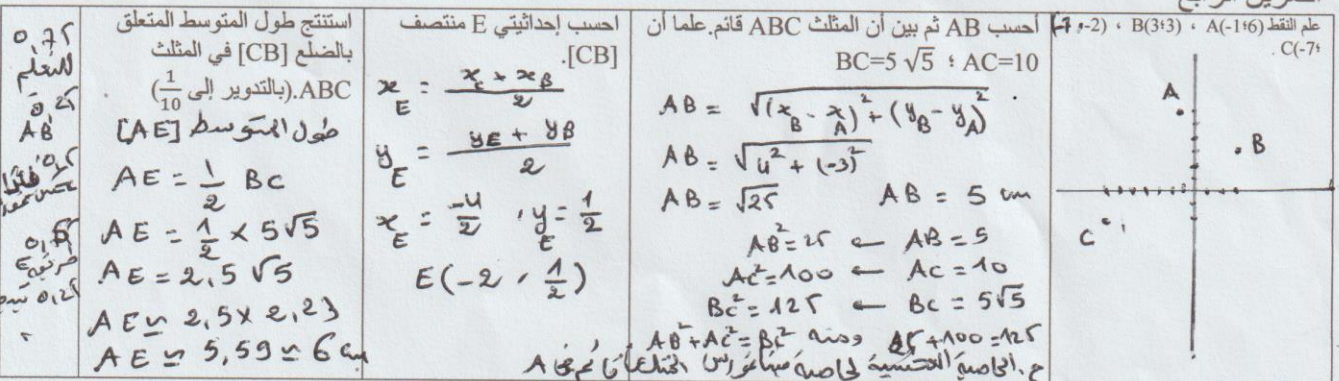 علم النقط A(-1؛6) ، B(3؛3) ، (-2 ، -7)
C(-7؛ .
A
B
C
أحسب AB ثم بين أن المثلث ABC قائم. علما أن
AC=10 ؛ BC=5 √5
AB = √(x_B - x_A)² + (y_B - y_A)²
AB = √4² + (-3)²
AB = √25 AB = 5 cm
AB² = 25 ← AB = 5
AC² = 100 ← AC = 10
BC² = 125 ← BC = 5√5
AB² + AC² = BC² ومنه 25 + 100 = 125
ح. الخاصية العكسية لخاصية فيثاغورس المثلث قائم في A
احسب إحداثيتي E منتصف
[CB].
x_E = x_C + x_B / 2
y_E = y_E + y_B / 2
x_E = -4/2 ، y_E = 1/2
E(-2 ، 1/2)
استنتج طول المتوسط المتعلق
بالضلع [CB] في المثلث
ABC.(بالتدوير إلى 1/10)
طول المتوسط [AE]
AE = 1/2 BC
AE = 1/2 × 5√5
AE = 2,5 √5
AE ≃ 2,5 × 2,23
AE ≃ 5,59 ≃ 6 cm
0,75
للتعلم
0,25
AB
0,25